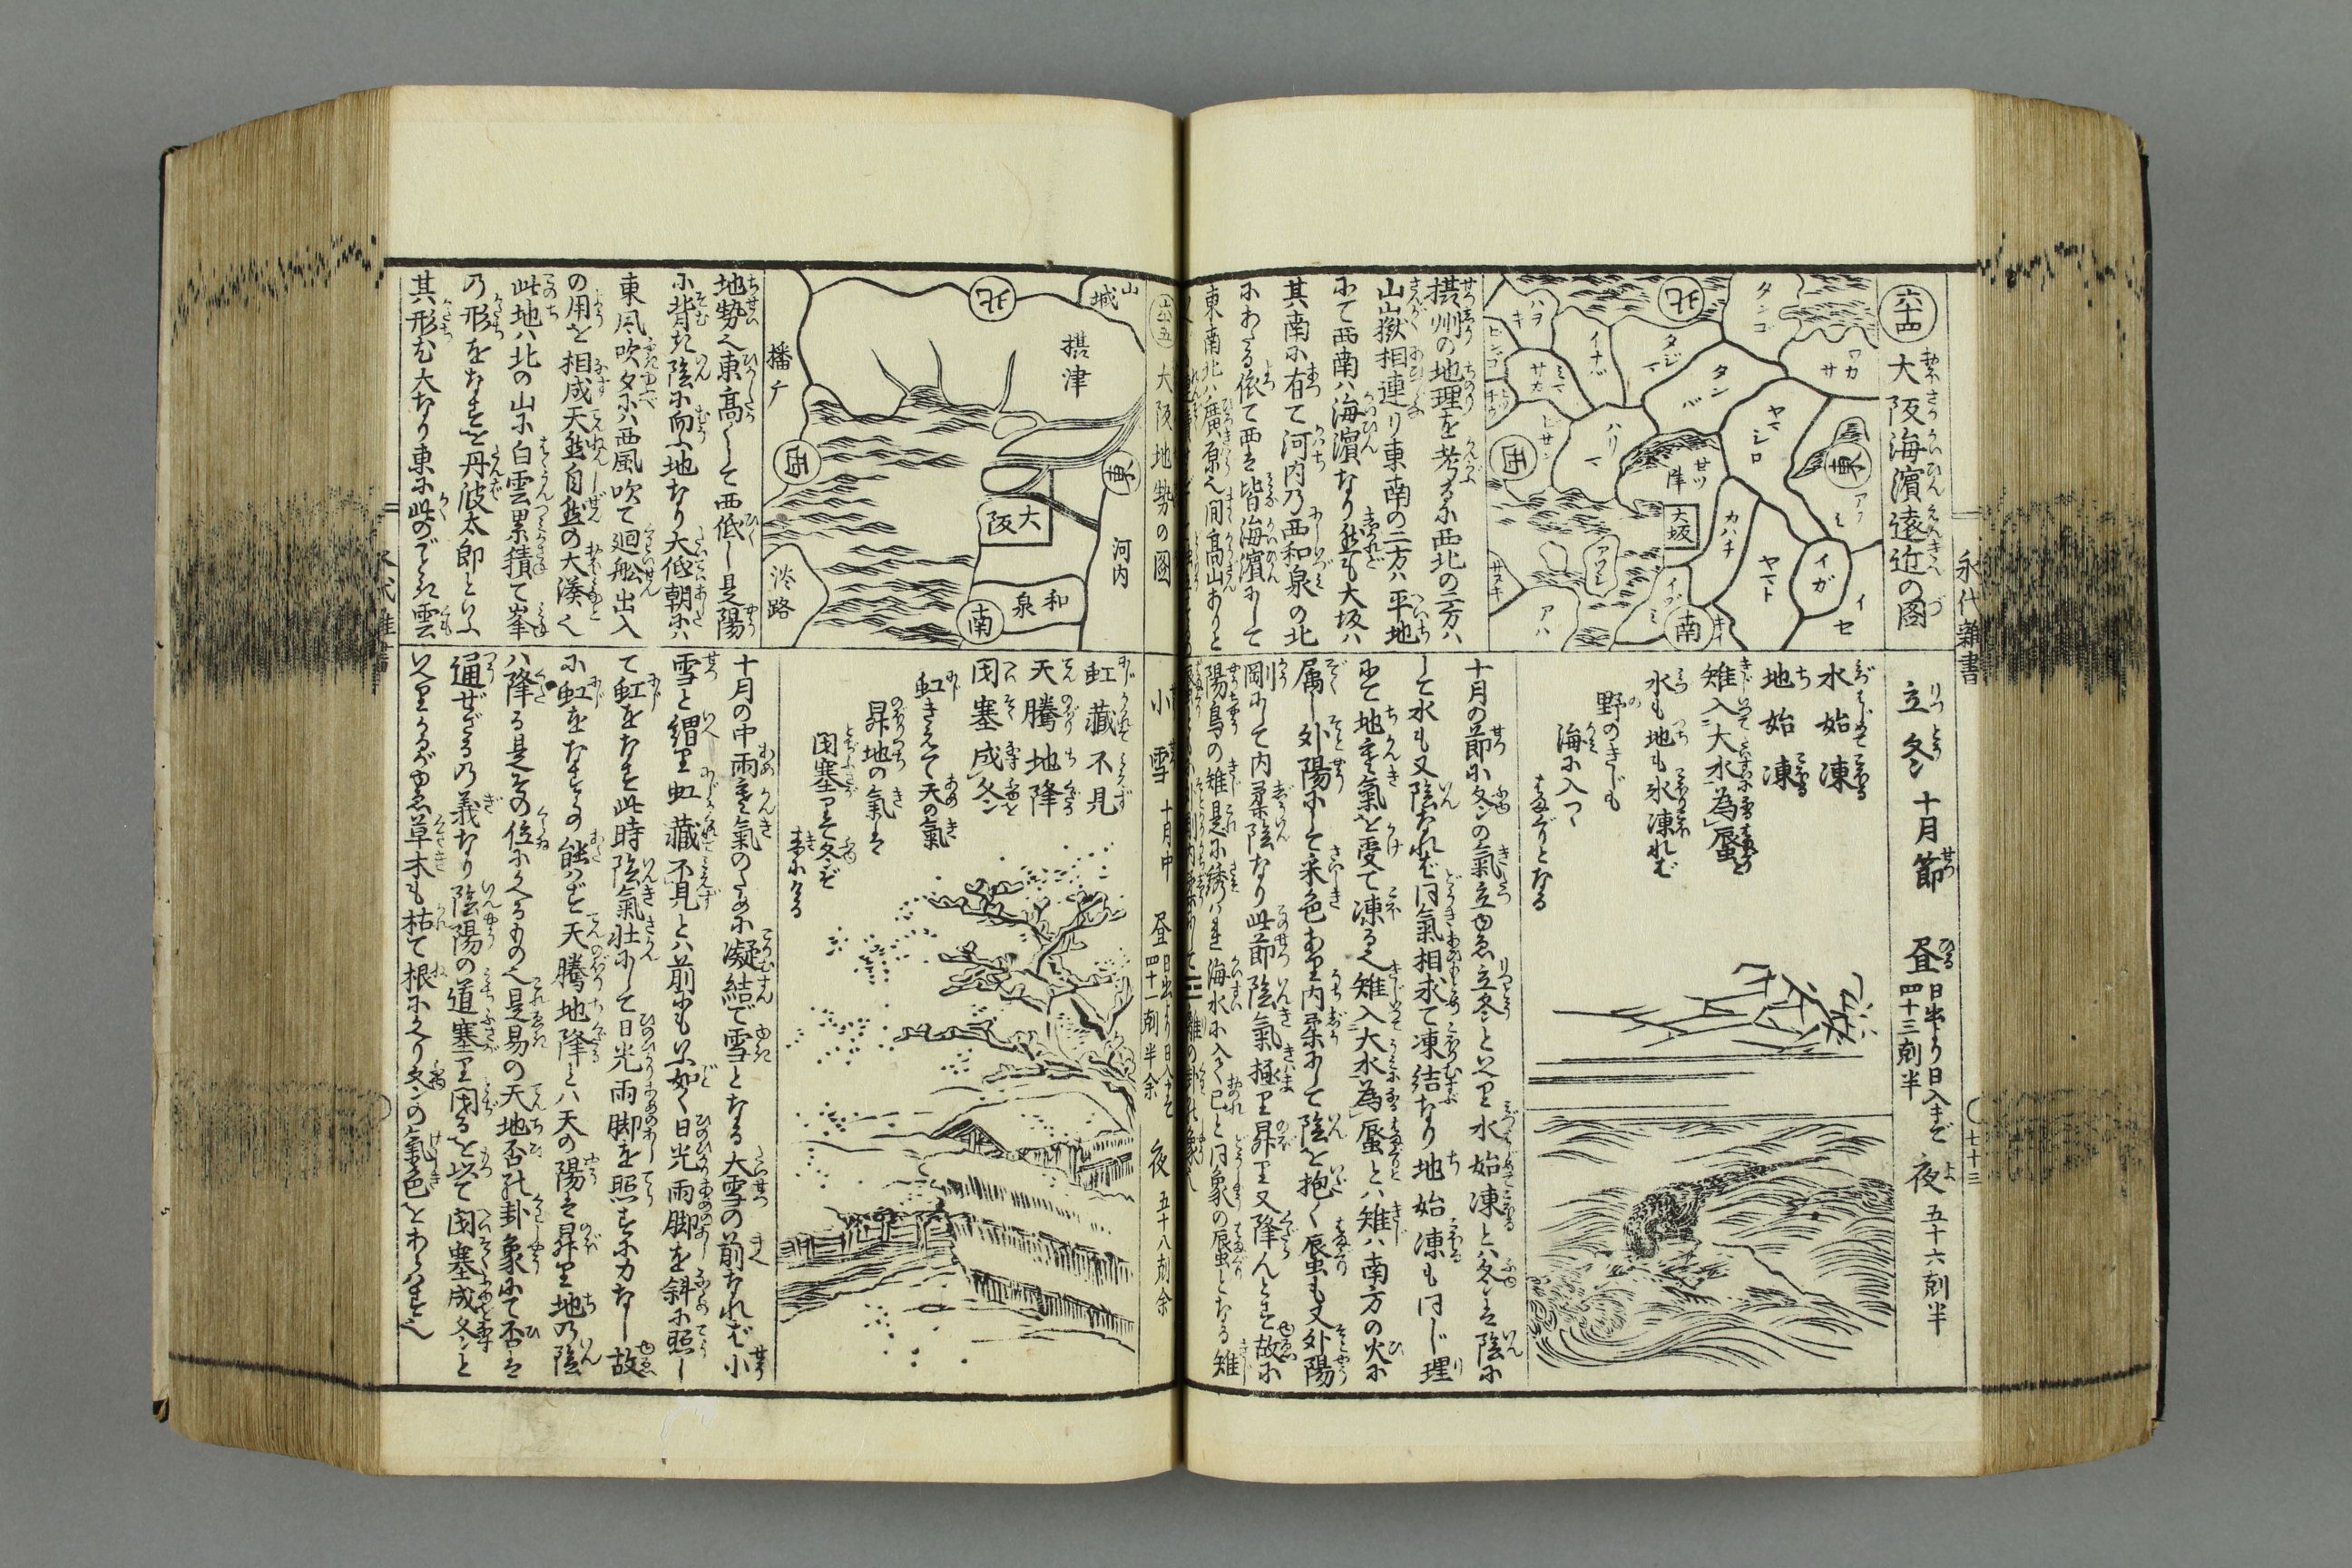 永代雜書
七十三
六十四
大阪海濱遠近の圖
北
タンゴ
ワカサ
タジマ
イナバ
ハウキ
ミマサカ
タンバ
ヤマシロ
東
ハリマ
ビゼン
西
セツ津
大坂
カハチ
ヤマト
イガ
イセ
アワジ
イヅミ
南
アハ
サヌキ
摂州の地理を考るに西北の二方ハ
山嶽相連り東南の二方ハ平地
にて西南ハ海濱なり然も大坂ハ
其南に有て河内乃西和泉の北
にあたる依て西は皆海濱にして
東南北ハ廣原也間高山ありと
立冬 十月節 昼 日出より日入まで 四十三刻半 夜 五十六刻半
水始凍
地始凍
雉入大水為蜃
水も地も氷凍れば
野のきじも
海に入つゝ
はまぐりとなる
十月の節に冬の氣立ゆゑ立冬といへり水始凍とハ冬は陰に
して水も又陰なれば同氣相求て凍結なり地始凍も同じ理
にて地寒氣を受て凍る也雉入大水為蜃とハ雉ハ南方の火に
属し外陽にして采色あり内柔にして陰を抱く蜃も又外陽
剛にして内柔陰なり此節陰氣極り昇り又降んとす故に
陽鳥の雉是に誘ハれ海水に入て己と同象の蜃となる雉
六十五
大阪地勢の圖
北
山城
摂津
播州
西
東
大阪
河内
和泉
南
淡路
地勢ハ東高くして西低し是陽
に背き陰に向ふ地なり大低朝にハ
東風吹夕にハ西風吹て廻舩出入
の用を相成天然自然の大湊也
此地ハ北の山に白雲累積て峯
乃形をなすを丹波太郎といふ
其形尤大なり東に此のごとき雲
小雪 十月中 昼 日出より日入まで 四十一刻半余 夜 五十八刻余
虹藏不見
天騰地降
閉塞成冬
虹きえて天の氣
昇地の氣は
閉塞りて冬ぞ
来にける
十月の中雨寒氣のために凝結て雪となる大雪の前なれば小
雪と謂り虹藏不見とハ前にもいふ如く日光雨脚を斜に照し
て虹をなす此時陰氣壮にして日光雨脚を照すに力なし故
に虹をなすの能ハず天騰地降とハ天の陽は昇り地乃陰
ハ降る是その位にかへるもの也是易の天地否の卦象にて否は
通ぜざる乃義なり陰陽の道塞り閉るを以て閉塞成冬と
いへりかるがゆゑ草木も枯て根にかへり冬の氣色をあらハす也